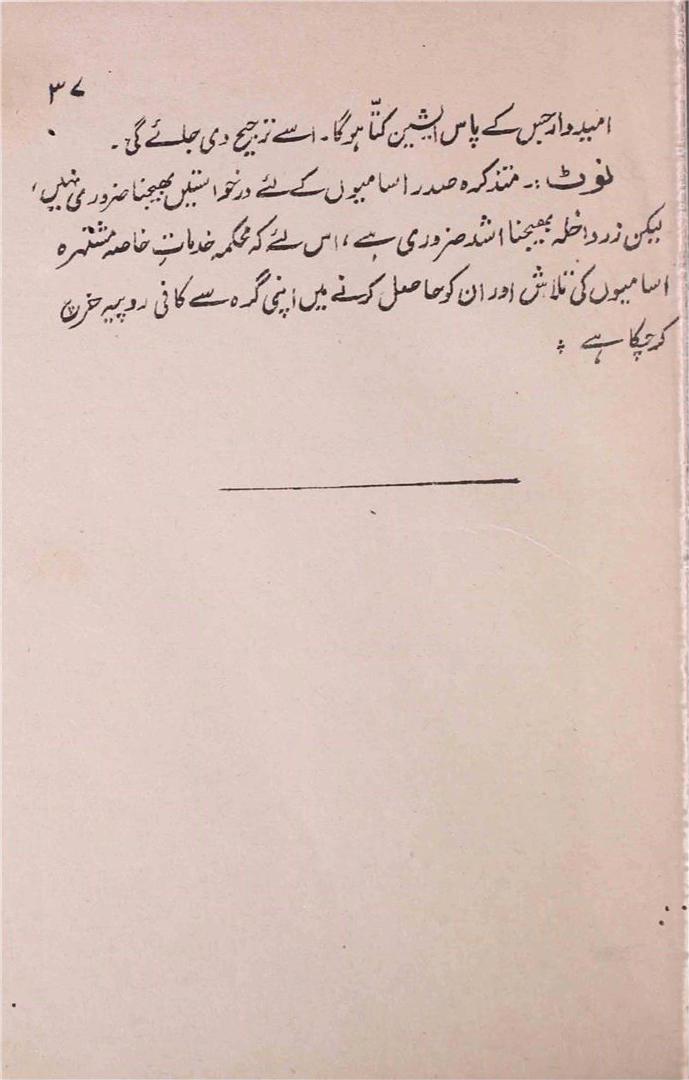 ۳۷
امیدوار جس کے پاس ایلشین کتّا ہوگا۔ اسے ترجیح دی جائے گی۔
نوٹ :۔ متذکرہ صدر اسامیوں کے لئے درخواستیں بھیجنا ضروری نہیں،
لیکن زرداخلہ بھیجنا اشد ضروری ہے، اس لئے کہ محکمہ خدماتِ خاصہ مشتہرہ
اسامیوں کی تلاش اور ان کو حاصل کرنے میں اپنی گرہ سے کافی روپیہ خرچ
کر چکا ہے ؞